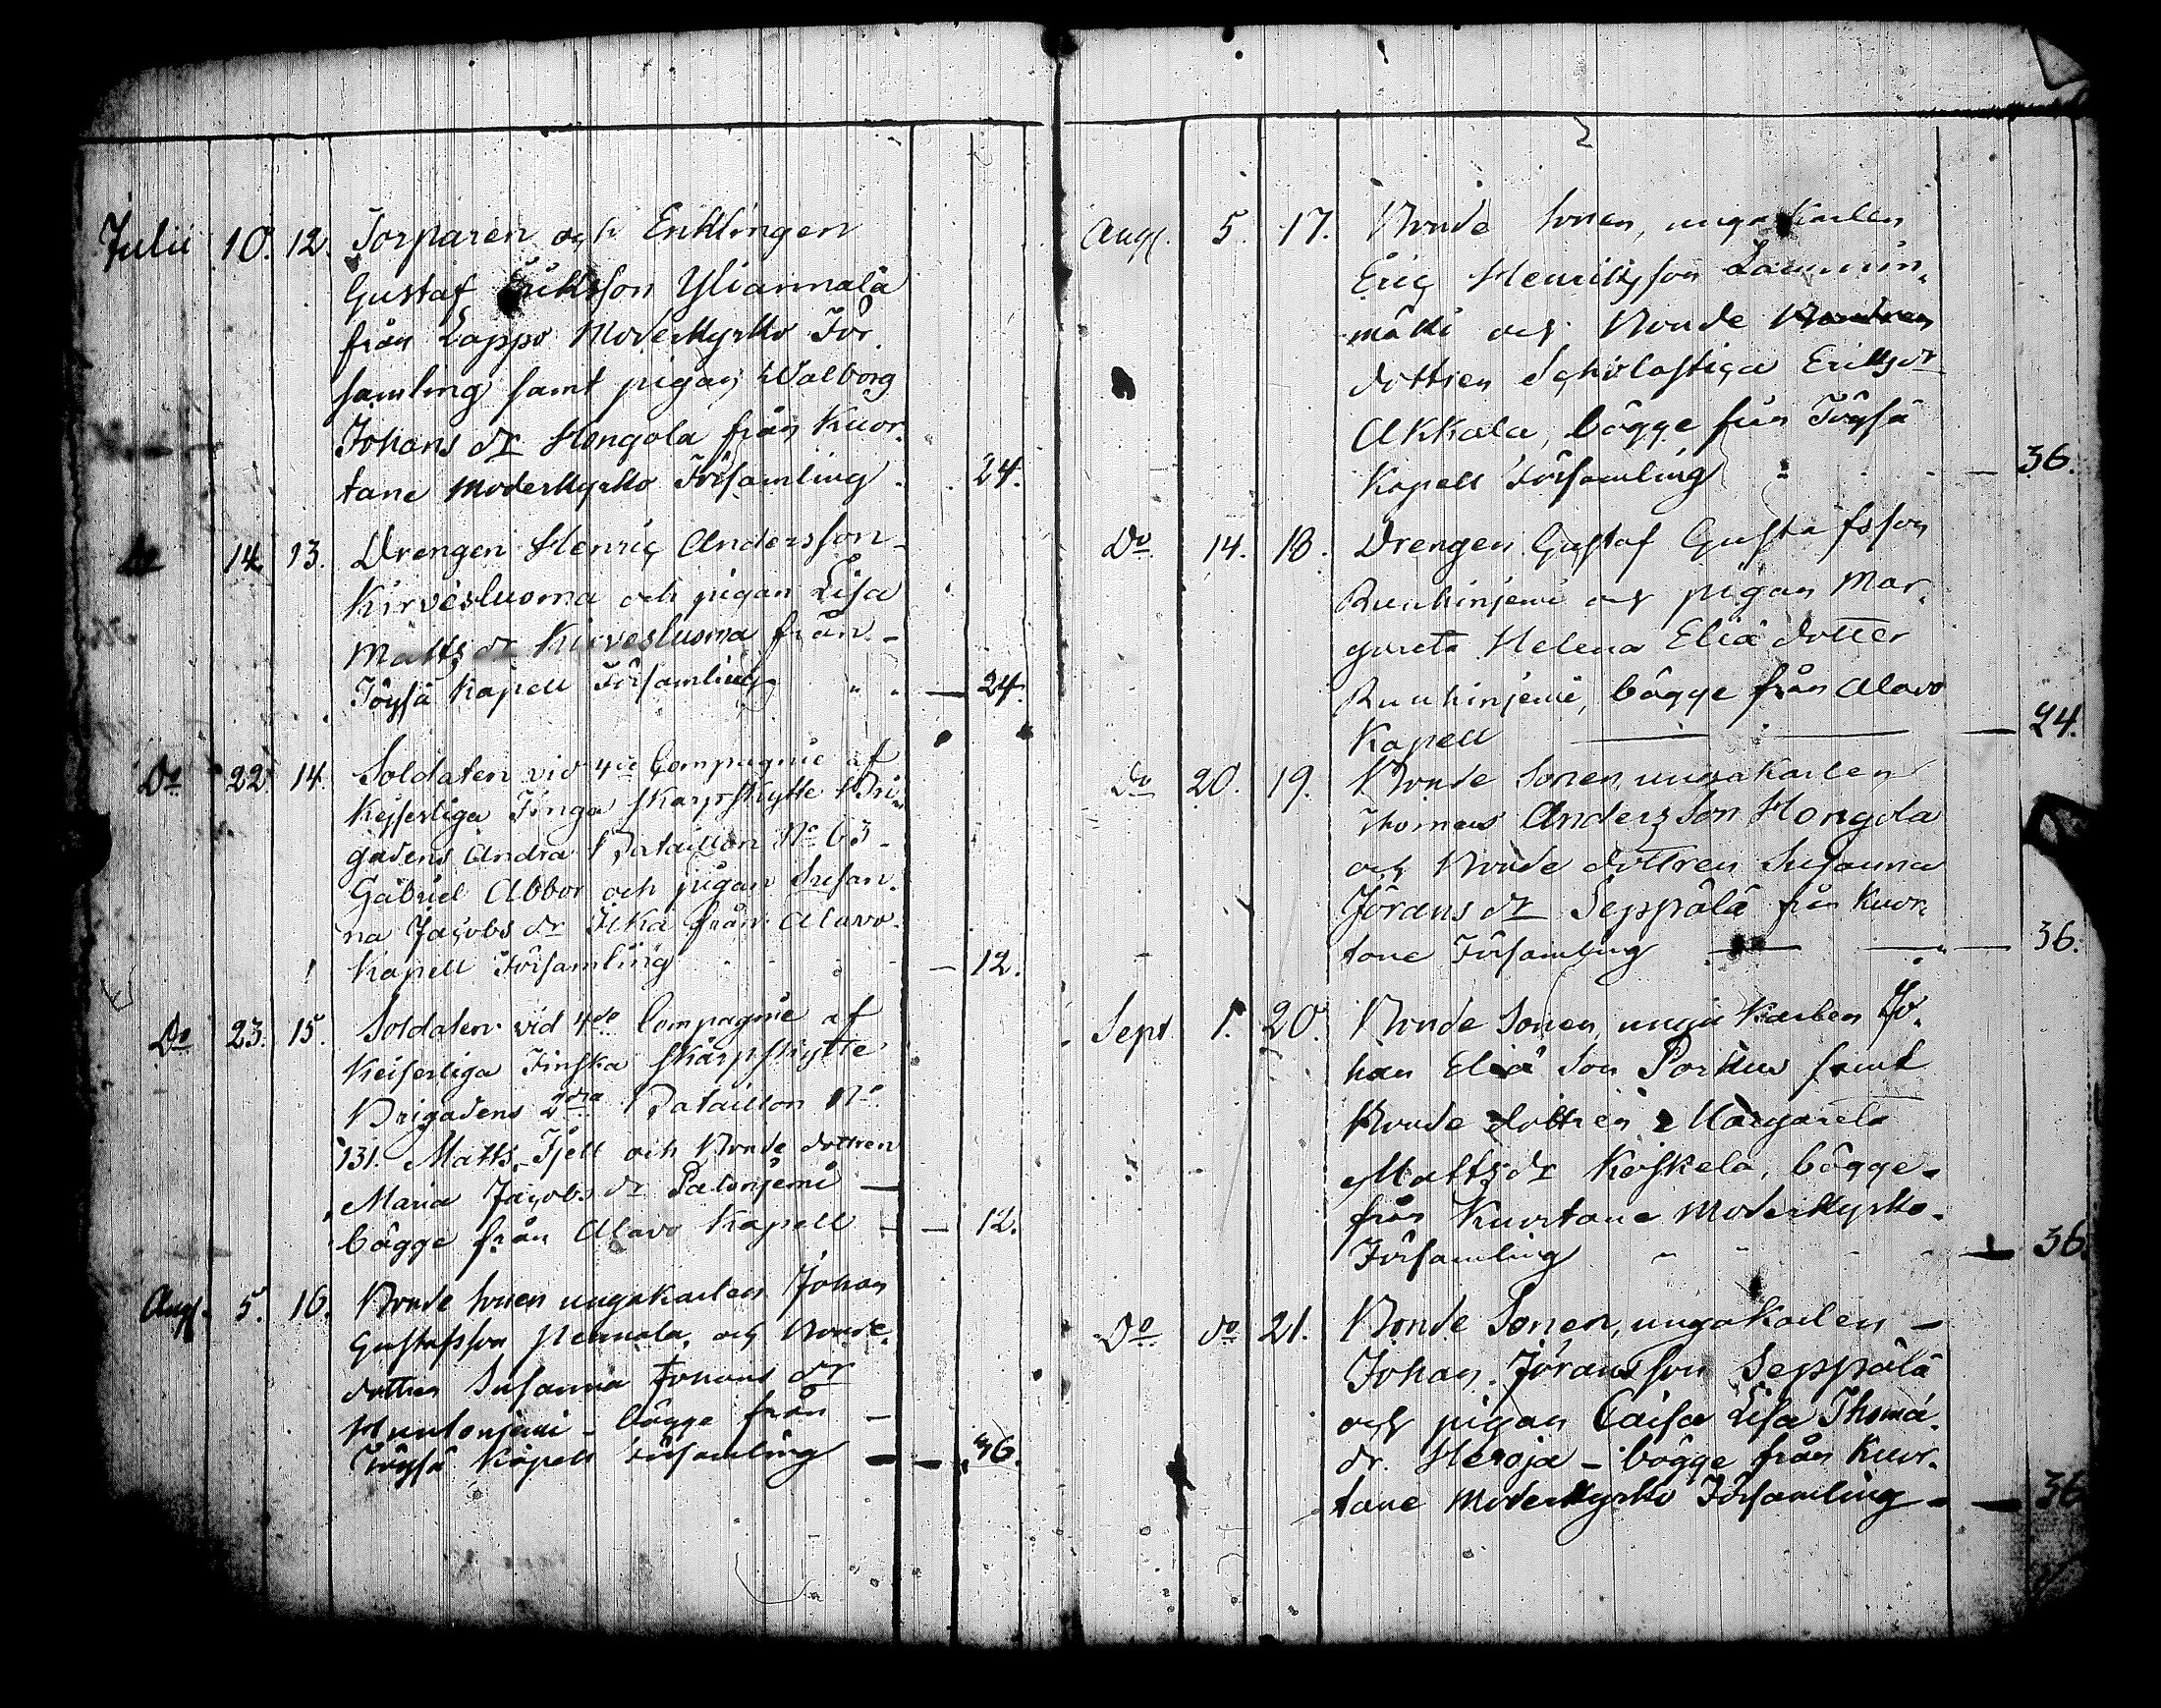 Julii 10. 12. Torparen och Enklingen
Gustaf Eriksson Yliannala
från Lappo Moderkyrko För
samling samt pigan Walborg
Johans dr Hongola från Kuor
tane moderkyrko Församling . . 24.
Do 14. 13. Drengen Henric Andersson
Kirvesluoma och pigan Lisa
Matts dr Kirvesluoma från
Töysä Kapell Församling " " — 24.
Do 22 14. Soldaten vid 4de Compagnie af
Kejserliga Finga Skarpskytte Bri
gadens Andra Bataillon No 63
Gabriel Abbor och pigan Susan
na Jacobs dr Ilka från Alavo
Kapell Församling — 12.
Do 23. 15. Soldaten vid 4de Compagnie af
Keiserliga Finska Skarpskytte
Brigadens 2dra Bataillon No
131. Matts Fjell och Bonde dottren
Maria Jacobs dr Patonjemi —
bägge från Alavo Kapell — 12.
Aug. 5. 16. Bonde Sonen ungakarlen Johan
Gustafsson och Bonde
dottren Susanna Johans dr
bägge från —
Töysä Kapell Församling — — 36.
Aug. 5. 17. Bonde Sonen, ungakarlen
Eric Henriksson Lammin
mäki och Bonde
dottren Scholastica Eriksdr
Akkala, bägge från Töysä
Kapell Församling — 36.
Do 14. 18. Drengen Gustaf Gustafsson
Ruuhinjemi och pigan Mar
gareta Helena Eliæ dotter
Ruuhinjemi, bägge från Alavo
Kapell — — — 24.
Do 20. 19. Bonde Sonen ungakarlen
Thomas Anders Son Hongola
och Bonde dottren Susanna
Jörans dr Seppälä från Kuor
tane Församling — — — 36.
Sept 1. 20. Bonde Sonen, unga karlen Jo
han Eliæ Son Porkus samt
Bonde dottren Margareta
Matts dr Koskela, bägge
från Kuortane Moderkyrko
Församling — 36
Do do 21. Bonde Sonen, ungakarlen —
Johan Jöransson Seppälä
och pigan Caisa Lisa Thomæ
dr. Heroja — bägge från Kuor
tane Moderkyrko Församling — 36